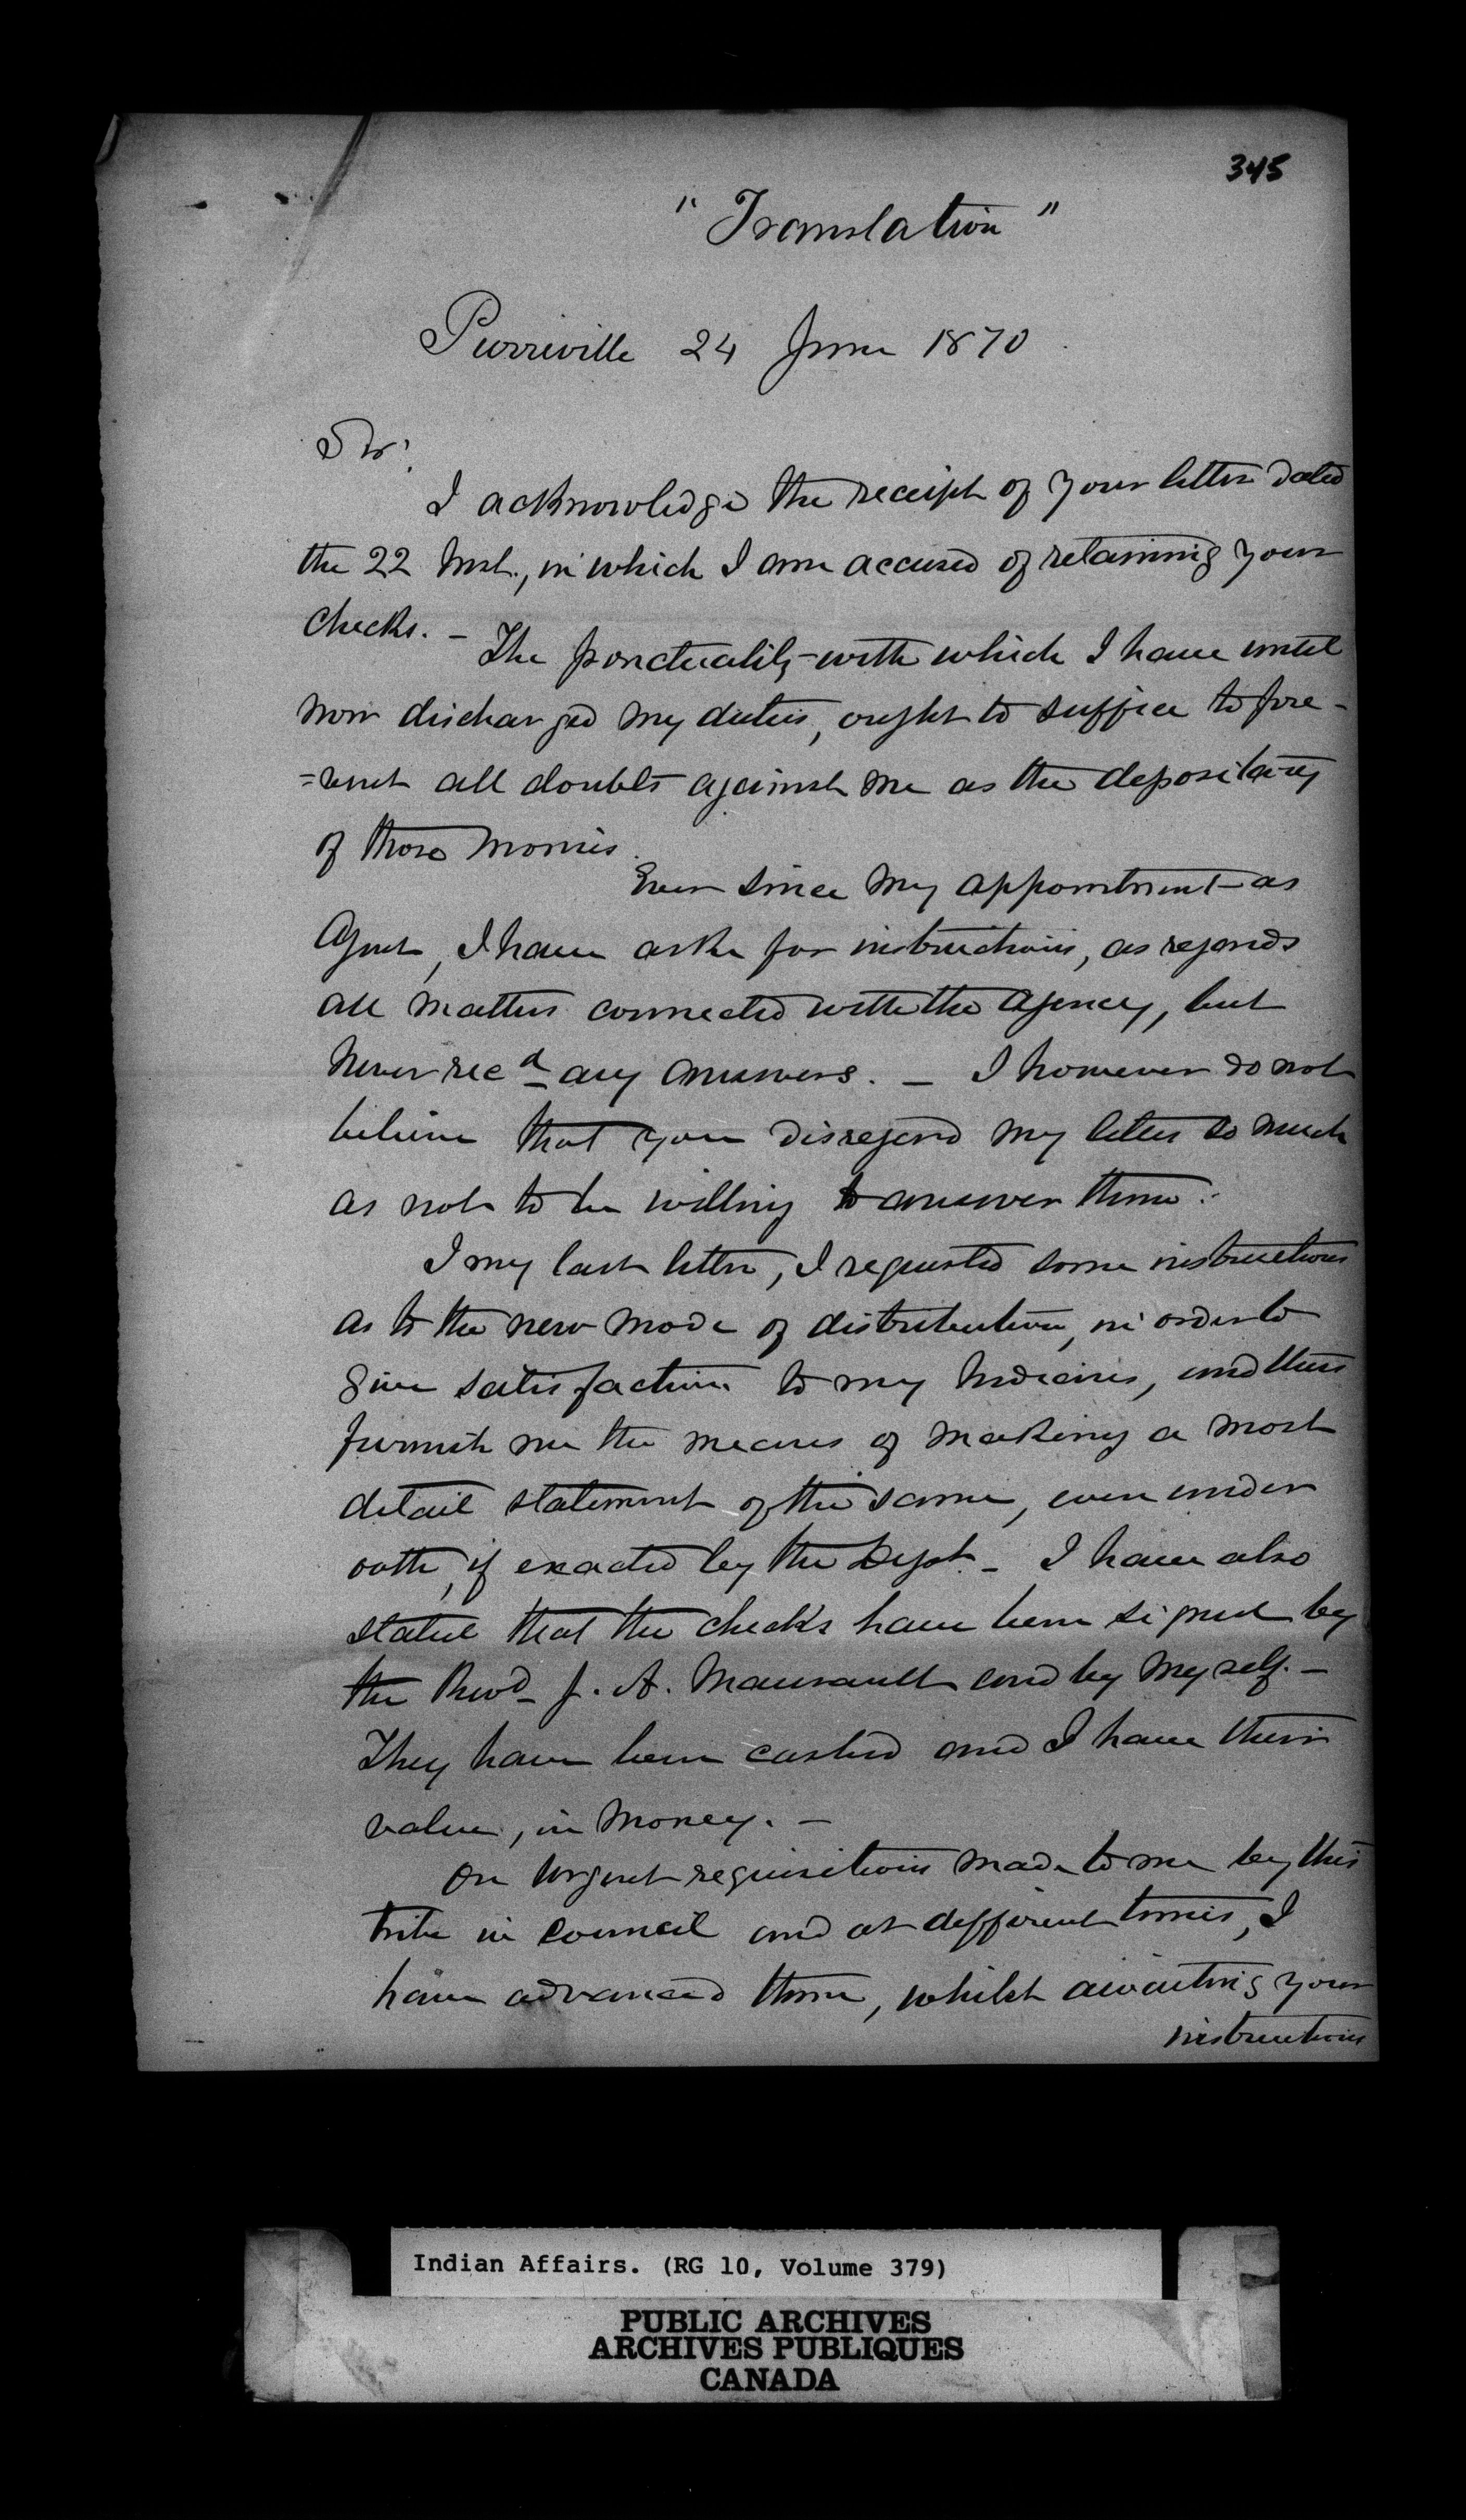 345
"Translation"
Pierreville 24 June 1870
Sir,
I acknowledge the receipt of your letter dated
the 22 Inst., in which I am accused of retaining your
checks. – The ponctuality with which I have until
now discharged my duties, ought to suffice to pre-
=vent all doubts against me as the depositary
of those monies.
Ever since my appointment as
Agent, I have aske for instructions, as regards
all matters connected with the agency, but
never recd any answers. – I however do not
believe that you disregard my letters so much
as not to be willing to answer them.
I my last letter, I requested some instructions
as to the new mode of distribution, in order to
give satisfaction to my Indians, and thus
furnish me the means of making a most
detail statement of the same, even under
oath, if exacted by the Dept. – I have also
stated that the checks have been signed by
the Revd J. A. Maurault and by myself. –
They have been cashed and I have their
value, in money. –
On urgent requisitions made to me by this
tribe in council and at different times, I
have advanced them, whilst awaiting your
instructions
Indian Affairs. (RG 10, Volume 379)
PUBLIC ARCHIVES
ARCHIVES PUBLIQUES
CANADA